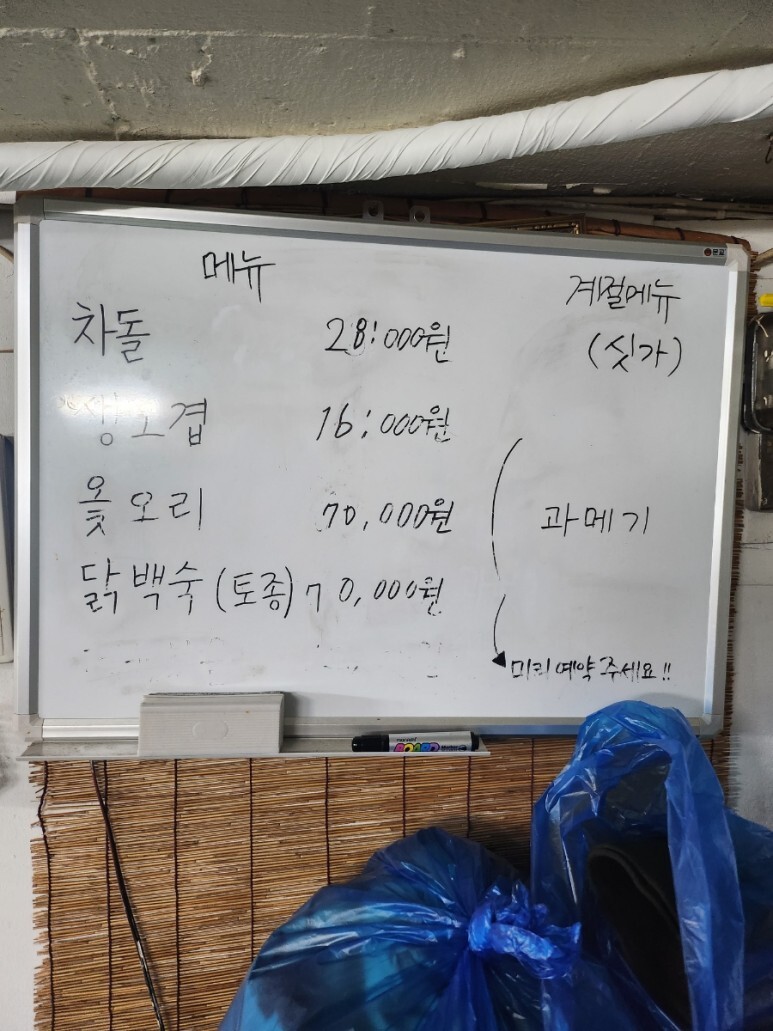 메뉴
차돌 28:000원
생오겹 16:000원
옻오리 70,000원
닭백숙(토종) 70,000원
계절메뉴
(싯가)
과메기
미리예약주세요!!